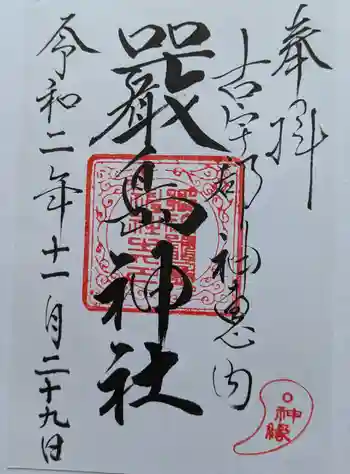 奉拝
古宇郡神恵内
嚴島神社
令和二年十一月二十九日
神縁